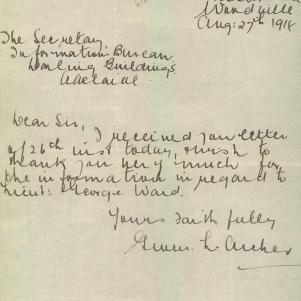 Woodville
Aug: 27th 1918
The Secretary
Information Bureau
Darling Buildings
Adelaide
Dear Sir,
I received your letter
of 26th inst today, & wish to
thank you very much for
the information in regard to
Lieut: George Ward.
Yours faithfully
Gwen. L. Archer